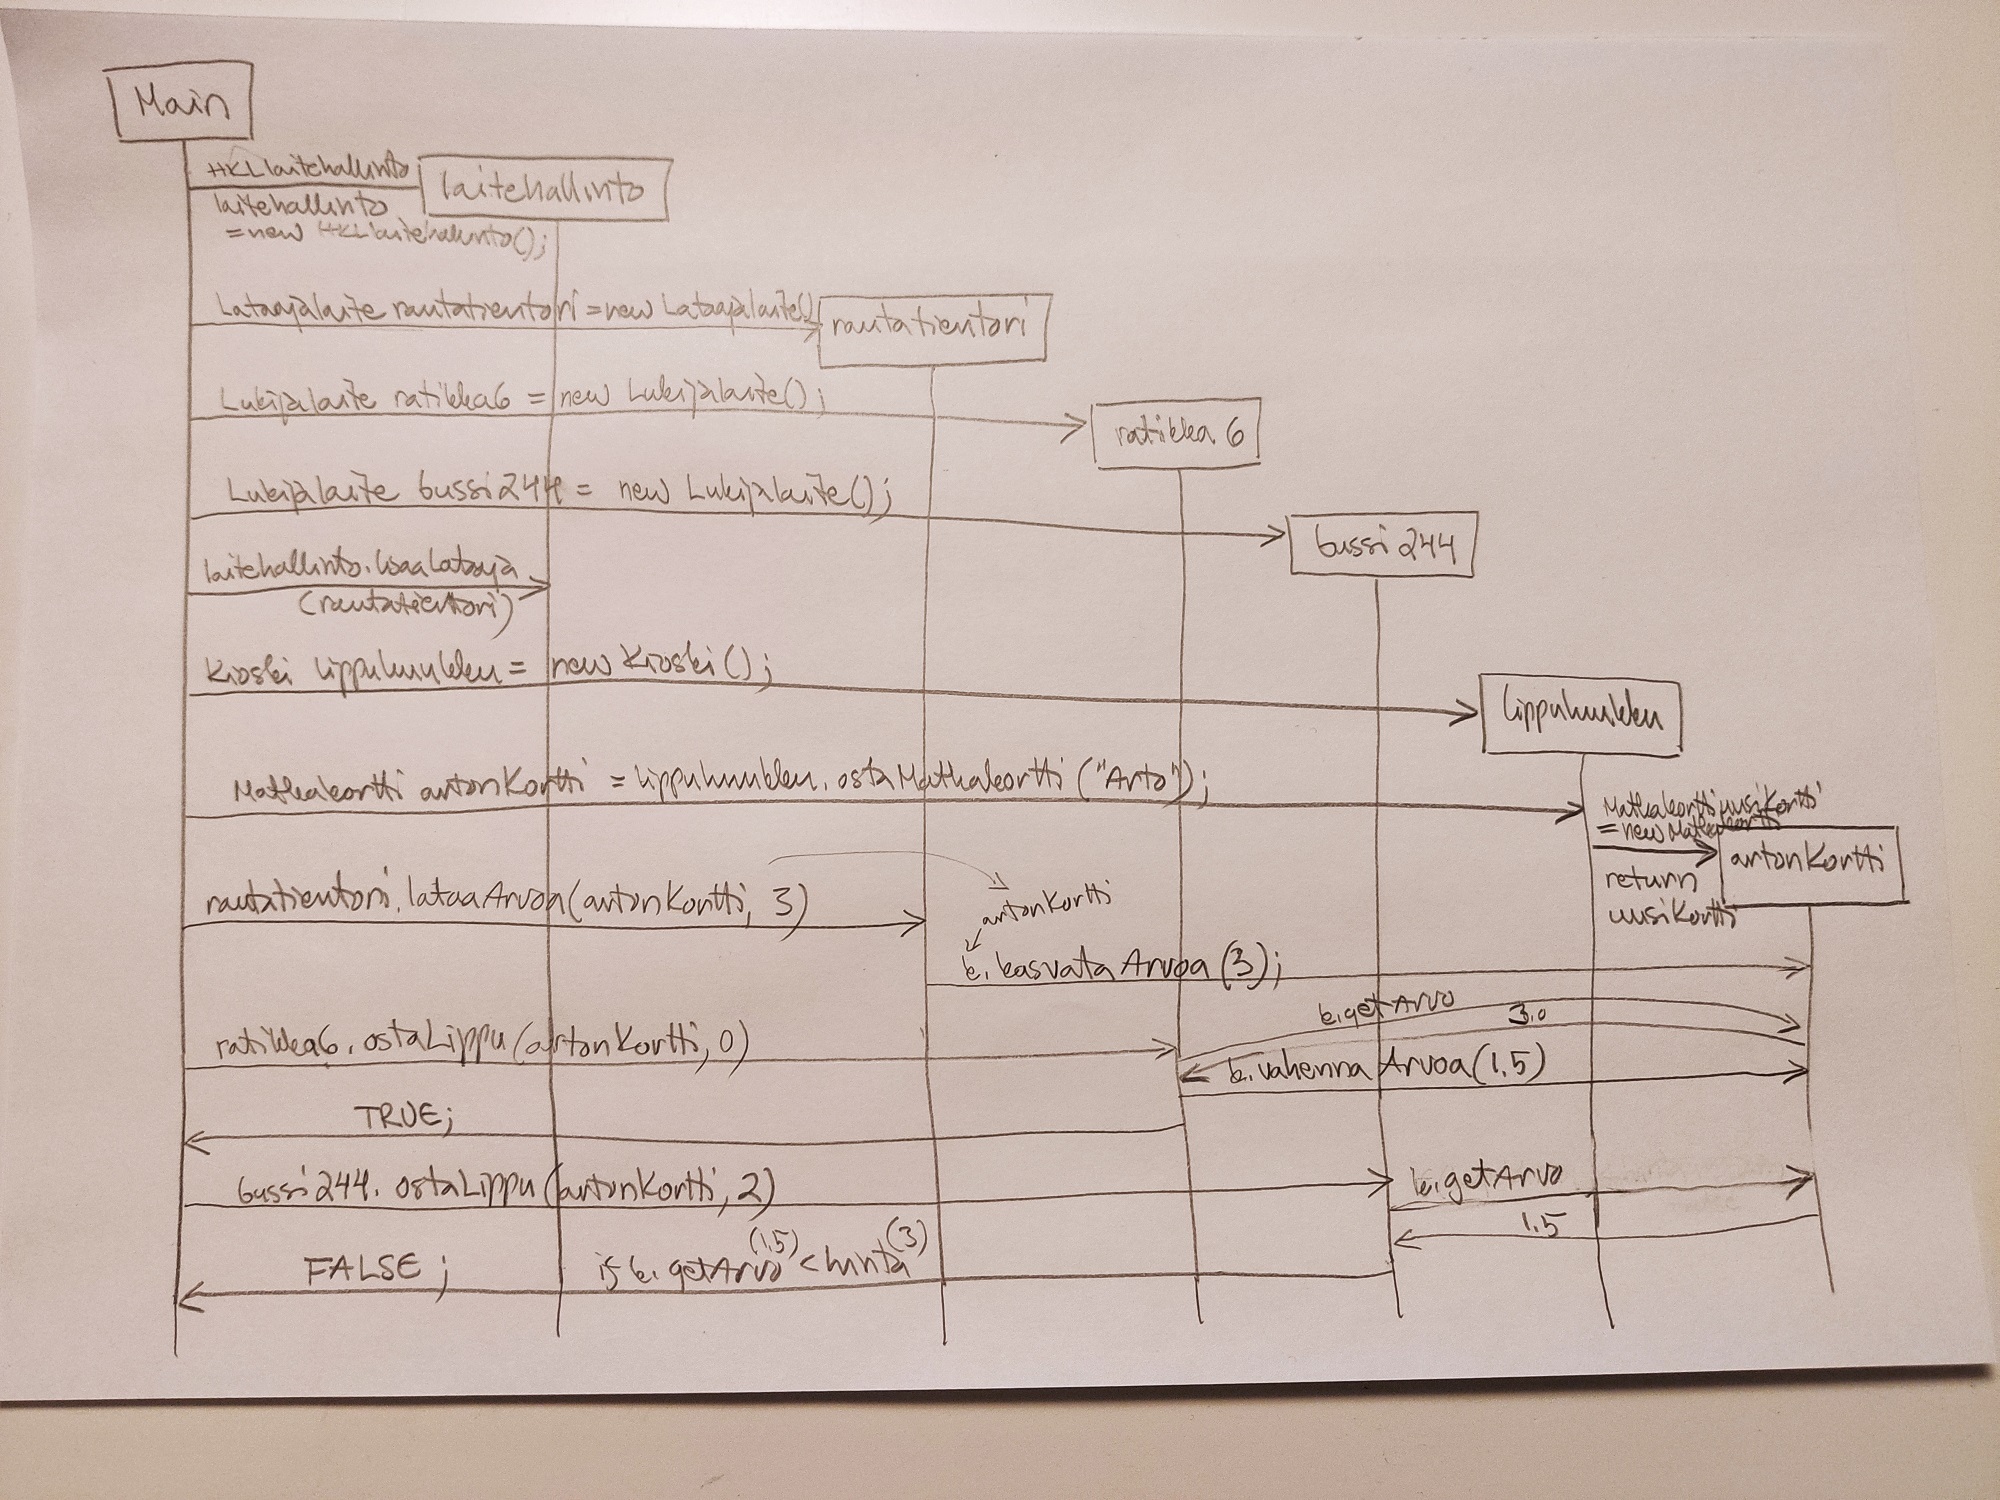 Main
HKLlaitehallinto
laitehallinto
laitehallinto
= new HKLlaitehallinto();
Lataajalaite rautatientori = new Lataajalaite()
rautatientori
Lukijalaite ratikka6 = new Lukijalaite();
ratikka 6
Lukijalaite bussi244 = new Lukijalaite();
bussi 244
laitehallinto.lisaaLataaja
(rautatientori)
Kioski lippuluukku = new Kioski();
lippuluukku
Matkakortti artonKortti = lippuluukku.ostaMatkakortti("Arto");
Matkakortti uusiKortti
= new Matkakortti
artonKortti
return
uusiKortti
rautatientori.lataaArvoa(artonKortti, 3)
artonKortti
k.kasvataArvoa(3);
k.getArvo
3.0
ratikka6.ostaLippu(artonKortti, 0)
k.vahennaArvoa(1.5)
TRUE;
bussi244.ostaLippu(artonKortti, 2)
k.getArvo
1.5
(1.5) (3)
FALSE; if k.getArvo < hinta